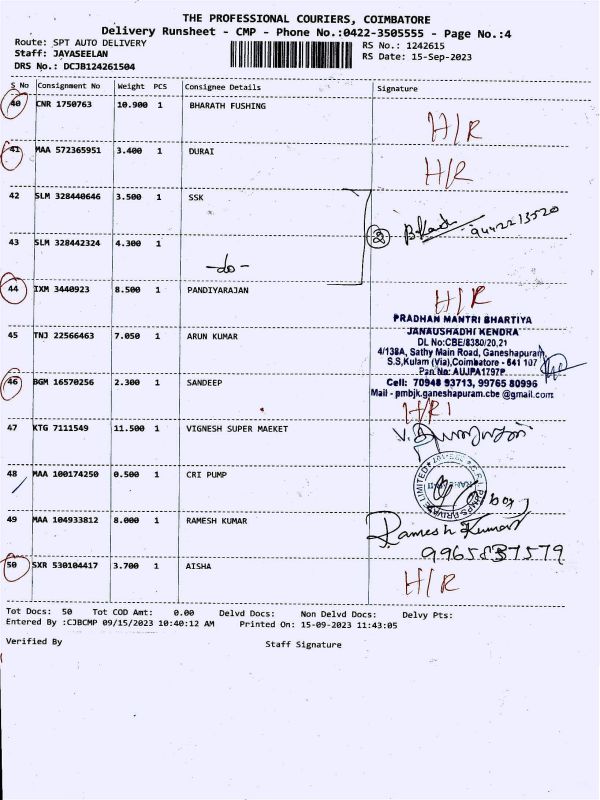 THE PROFESSIONAL COURIERS, COIMBATORE
Delivery Runsheet - CMP - Phone No.:0422-3505555 - Page No.:4
Route: SPT AUTO DELIVERY RS No.: 1242615
Staff: JAYASEELAN RS Date: 15-Sep-2023
DRS No.: DCJB124261504
S No Consignment No Weight PCS Consignee Details Signature
40 CNR 1750763 10.900 1 BHARATH FUSHING
H/R
41 MAA 572365951 3.400 1 DURAI
H/R
42 SLM 328440646 3.500 1 SSK
2 9442213520
43 SLM 328442324 4.300 1
-do-
44 IXM 3440923 8.500 1 PANDIYARAJAN
H/R
PRADHAN MANTRI BHARTIYA
JANAUSHADHI KENDRA
45 TNJ 22566463 7.050 1 ARUN KUMAR
DL No:CBE/8380/20,21
4/138A, Sathy Main Road, Ganeshapuram,
S.S,Kulam (Via),Coimbatore - 641 107
Pan No: AUJPA1797P
46 BGM 16570256 2.300 1 SANDEEP
Cell: 70948 93713, 99765 80996
Mail - pmbjk.ganeshapuram.cbe @gmail.com
H/R
47 KTG 7111549 11.500 1 VIGNESH SUPER MAEKET
48 MAA 100174250 0.500 1 CRI PUMP
box
49 MAA 104933812 8.000 1 RAMESH KUMAR
Ramesh Kumar
9965837579
50 SXR 530104417 3.700 1 AISHA
H/R
Tot Docs: 50 Tot COD Amt: 0.00 Delvd Docs: Non Delvd Docs: Delvy Pts:
Entered By :CJBCMP 09/15/2023 10:40:12 AM Printed On: 15-09-2023 11:43:05
Verified By Staff Signature